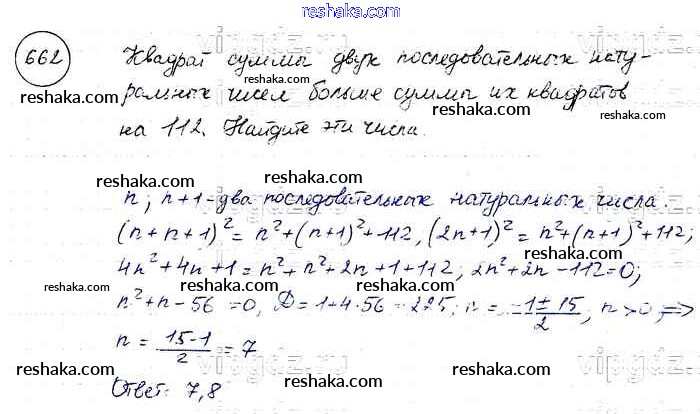 reshaka.com
662 Квадрат суммы двух последовательных нату-
reshaka.com reshaka.com
ральных чисел больше суммы их квадратов
reshaka.com reshaka.com
на 112. Найдите эти числа.
reshaka.com
n; n+1 - два последовательных натуральных числа.
reshaka.com reshaka.com
(n+n+1)²=n²+(n+1)²+112, (2n+1)²=n²+(n+1)²+112;
reshaka.com
4n²+4n+1=n²+n²+2n+1+112; 2n²+2n-112=0;
reshaka.com reshaka.com
n²+n-56=0, D=1+4·56=225; n = (-1±15)/2, n>0 ⇒
reshaka.com
n = (15-1)/2 = 7
reshaka.com reshaka.com
Ответ: 7,8
reshaka.com